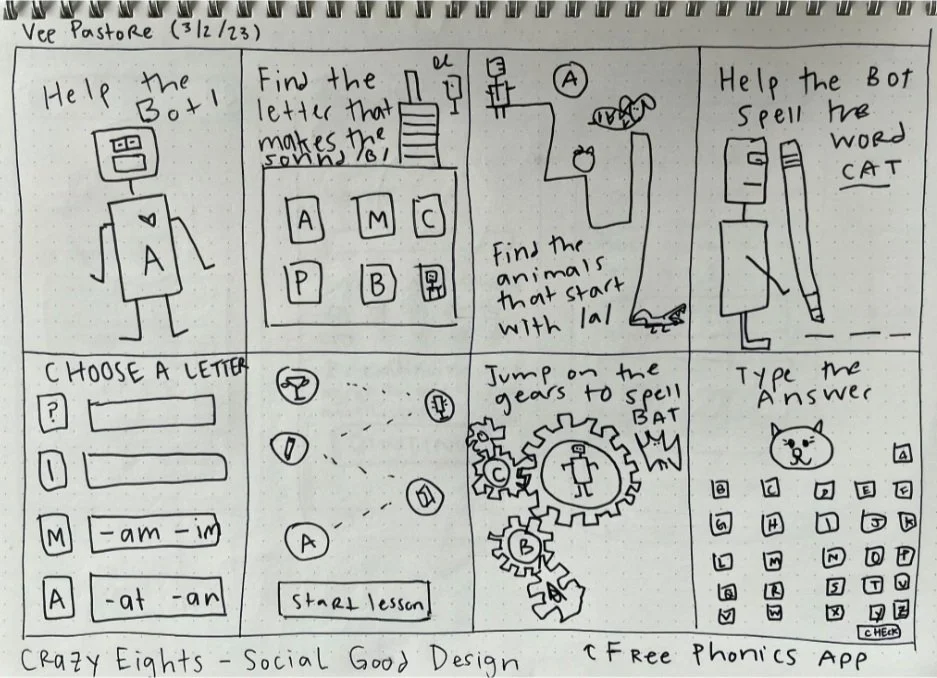 Vee Pastore (3/2/23)
Help the
Bot!
A
Find the
letter that
makes the
sound /B/
A M C
P B
A
Find the
animals
that start
with /a/
Help the Bot
Spell the
WORD
CAT
CHOOSE A LETTER
?
I
M -am -im
A -at -an
A
Start lesson
Jump on the
gears to spell
BAT
C
B
Type the
Answer
A
B C D E F
G H I J K
L M N O P
Q R S T U
V W X Y Z
CHECK
CRAZY EIGHTS - Social Good Design
↑ FREE PHONICS APP